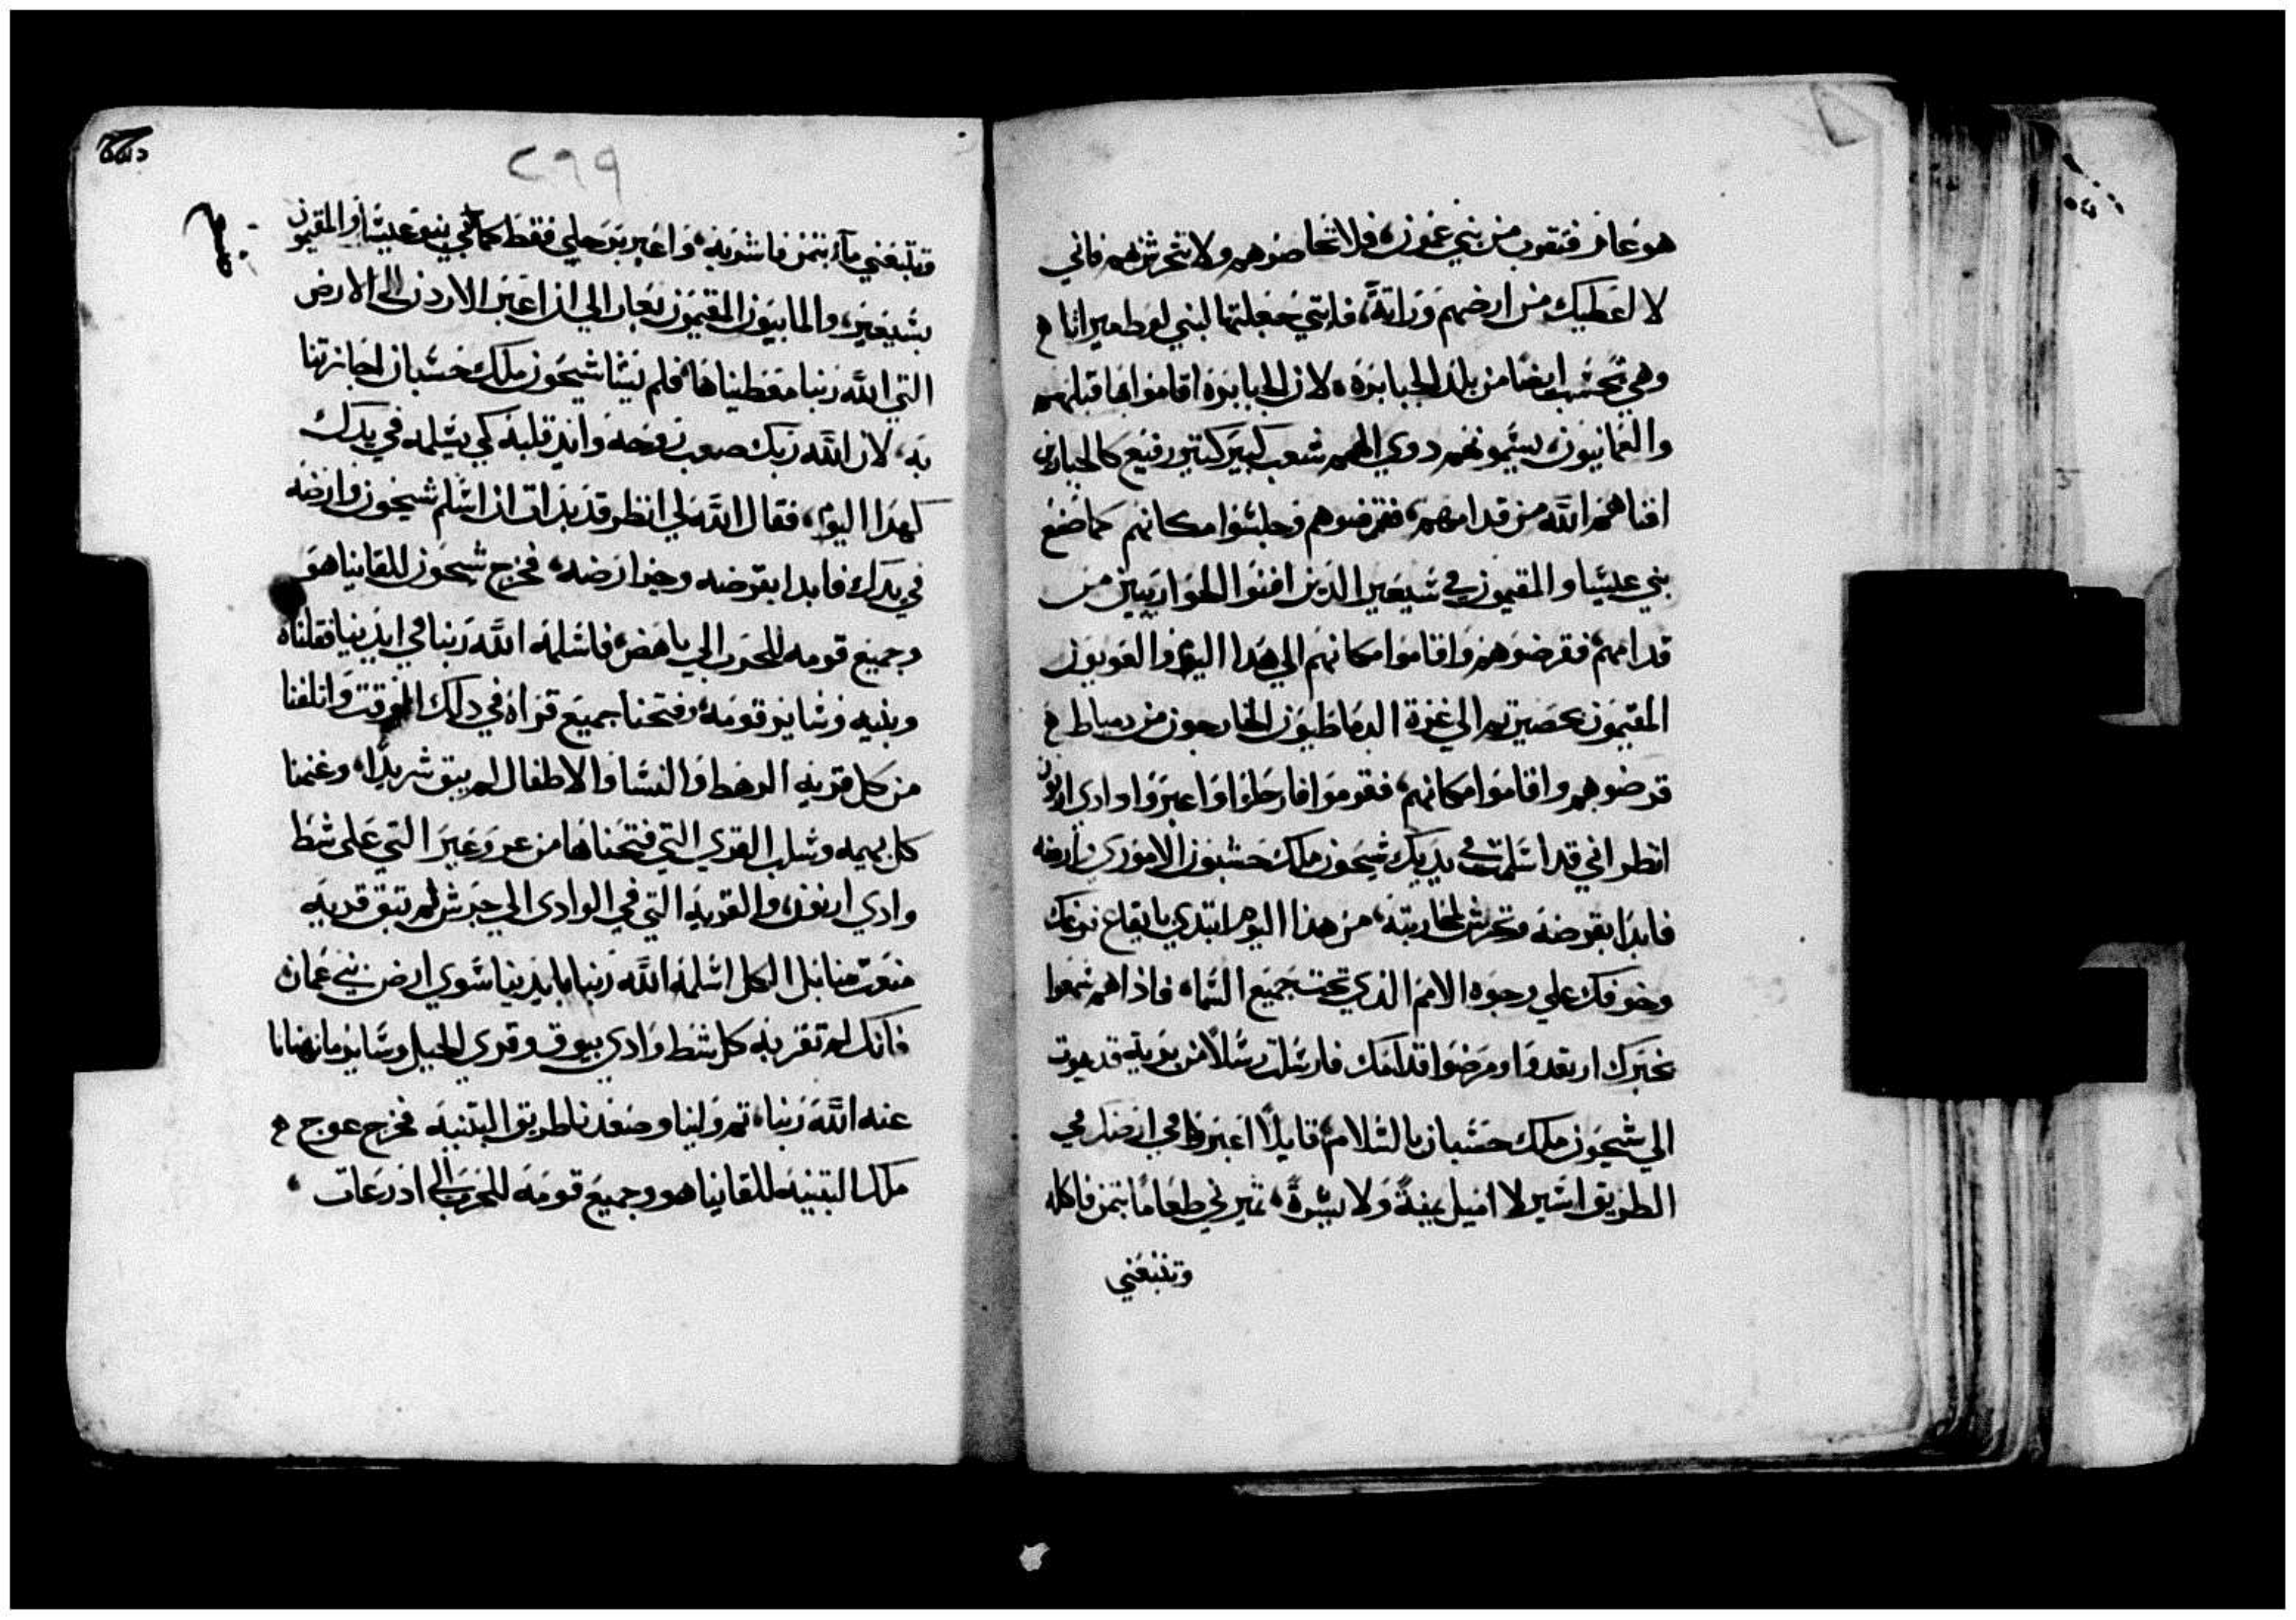 هو عار فتقرب من بني عمون، فلا تحاصروهم ولا تتحرش بهم فاني
لا اعطيك من ارضهم وراثة، فانني جعلتها لبني لوط ميراثا
وهي تحسب ايضا من بلد الجبابرة، لان الجبابرة اقاموا بها قبلهم
والعمانيون يسمونهم دوي الهمم شعب كبير كتير رفيع كالجبارين
افناهم الله من قدامهم، فقرضوهم وجلسوا مكانهم كما صنع
بني عيسا والمقيمون في سيعير الدين افنوا الحواريين من
قدامهم، فقرضوهم واقاموا مكانهم الي هدا اليوم والعويون
المقيمون بحصيرتهم الي غزة الدماطيون الخارجون من دمياط
قرضوهم واقاموا مكانهم، فقوموا فارحلوا واعبروا وادي ارنون
انظر اني قد اسلمت في يديك شيحون ملك حسبون الاموري وارضه
فابدا بقرضه وتحرش لمحاربته، من هذا اليوم ابتدي بايقاع فزعك
وخوفك علي وجوه الامم الذي تحت جميع السماء فاذا هم سمعوا
بخبرك ارتعدوا ومرضوا قدامك فارسلت رسلا من برية قديموت
الي شيحون ملك حسبان بالسلام، قايلا اعبر في ارضك في
الطريق اسير لا اميل يمنة ولا يسرة، تميرني طعاما بتمن فاكله
وتتبعني
٢٩٩
وتتبعني مآء بتمن فاشربه، واعبر برجلي فقط كما في بنو عيسا والمقيمون
بسيعير، والمابيون المقيمون بعار الي ان اعبر الاردن الي الارض
التي الله ربنا معطيناها، فلم يشا شيحون ملك حسبان اجازتنا
به، لان الله ربك صعب روحه وايد قلبه كي يسلمه في يدك
كهدا اليوم، فقال الله لي انظر قد بدات ان اسلم شيحون وارضه
في يدك فابدا بقرضه وحز ارضه، فخرج شيحون للقانيا هو
وجميع قومه للحرب الي ياهص، فاسلمه الله ربنا في ايدينا فقتلناه
وبنيه وساير قومه، وفتحنا جميع قراه في دلك الوقت واتلفنا
من كل قريه الرهط والنسا والاطفال لم يبق شريدا، وغنمنا
كل بهيمه وسلب القري التي فتحناها من عروعير التي على شط
وادي ارنون، والقريه التي في الوادى الي جرش لم تبق قريه
منعت منا بل الكل اسلمه الله ربنا بايدينا سوي ارض بني عمان
فانك لم تقربه كل شط وادي يبوق وقري الجبل وساير ما نهانا
عنه الله ربنا، تم ولينا وصعدنا طريق البتنيه فخرج عوج
ملك البتنيه للقانيا هو وجميع قومه للحرب الي ادرعات